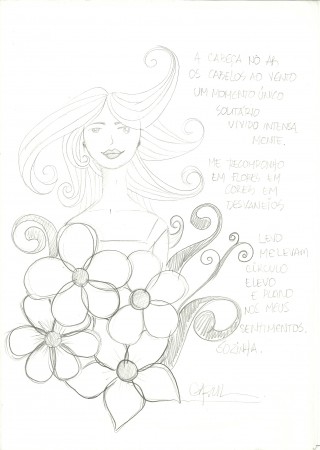 A CABEÇA NO AR
OS CABELOS AO VENTO
UM MOMENTO ÚNICO
SOLITÁRIO
VIVIDO INTENSA
MENTE.
ME RECOMPONHO
EM FLORES EM
CORES EM
DEVANEIOS
LEVO
ME LEVAM
CIRCULO
ELEVO
E PLANO
NOS MEUS
SENTIMENTOS.
SOZINHA.